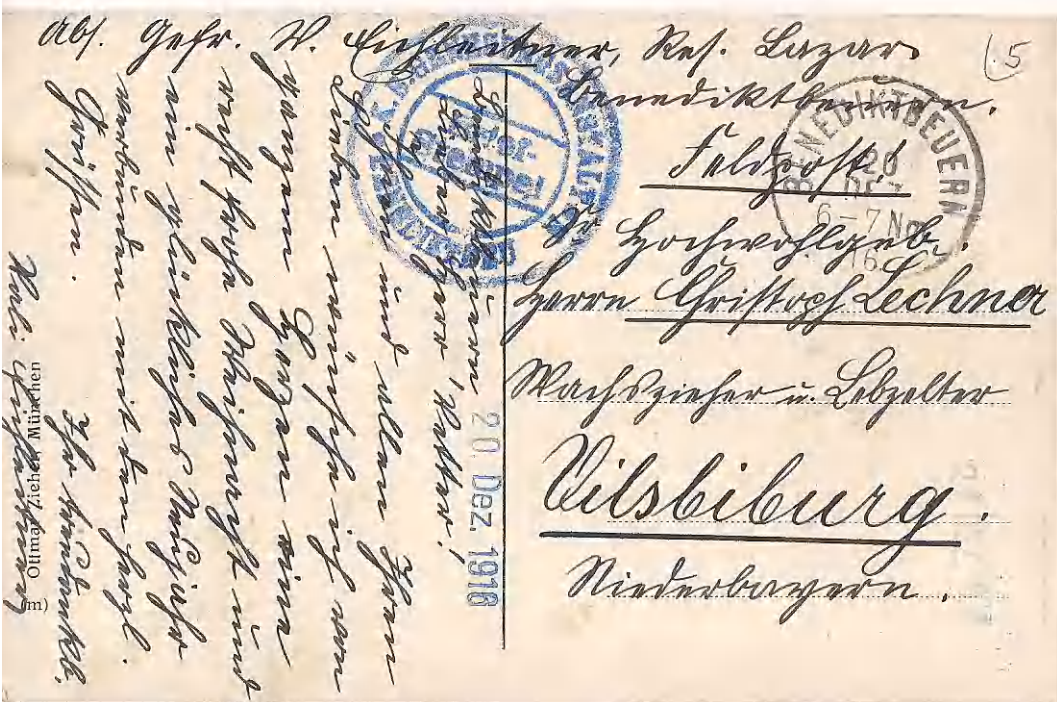 Abs. Gefr. V. Eichleitner, Res. Lazar.
Benediktbeuern.
Feldpost!
Sr Hochwohlgeb.
Herrn Christoph Lechner
Wachszieher u. Lebzelter
Vilsbiburg.
Niederbayern.
BENEDIKTBEUERN
20
DEZ
6-7 Nm
16
Benediktbeuern 20. Dez. 1916
Lieber Herr Vetter!
Ihnen und allen Ihren
Lieben wünsche ich von
ganzem Herzen eine
recht frohe Weihnacht und
ein glückliches Neujahr
verbunden mit den herzl.
Grüßen.
Ihr dankb.
Eichleitner
Ottmar Zieher, München
(m)